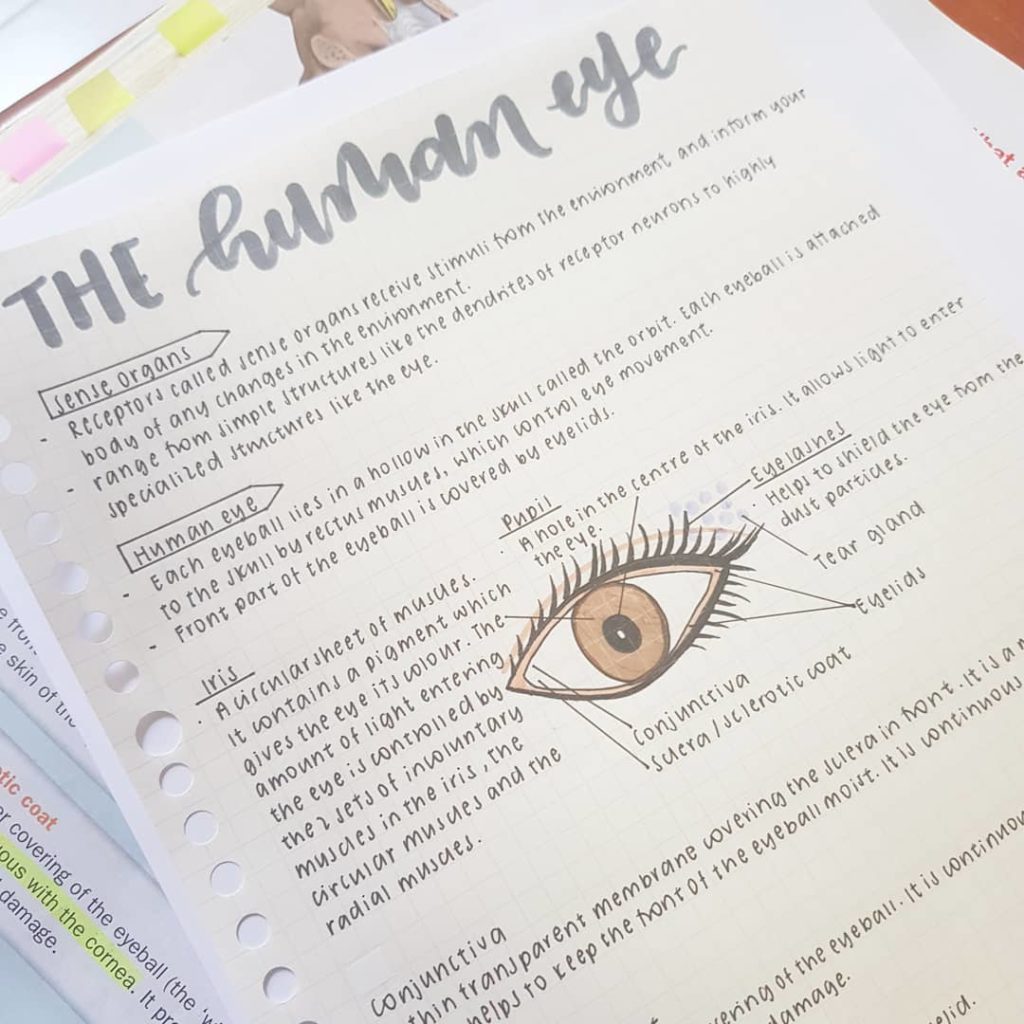 THE human eye
sense organs
- Receptors called sense organs receive stimuli from the environment and inform your
body of any changes in the environment.
- range from simple structures like the dendrites of receptor neurons to highly
specialized structures like the eye.
Human eye
- Each eyeball lies in a hollow in the skull called the orbit. Each eyeball is attached
to the skull by rectus muscles, which control eye movement.
- Front part of the eyeball is covered by eyelids.
Pupil
· A hole in the centre of the iris. It allows light to enter
the eye.
Eyelashes
Helps to shield the eye from the
dust particles.
Tear gland
Eyelids
Conjunctiva
Sclera/sclerotic coat
Iris
· A circular sheet of muscles.
It contains a pigment which
gives the eye its colour. The
amount of light entering
the eye is controlled by
the 2 sets of involuntary
muscles in the iris, the
circular muscles and the
radial muscles.
Conjunctiva
thin transparent membrane covering the sclera in front. It is a
helps to keep the front of the eyeball moist. It is continuous
of the eyeball. It is continuous
damage.
skin of the
otic coat
covering of the eyeball (the
ous with the cornea. It
damage.